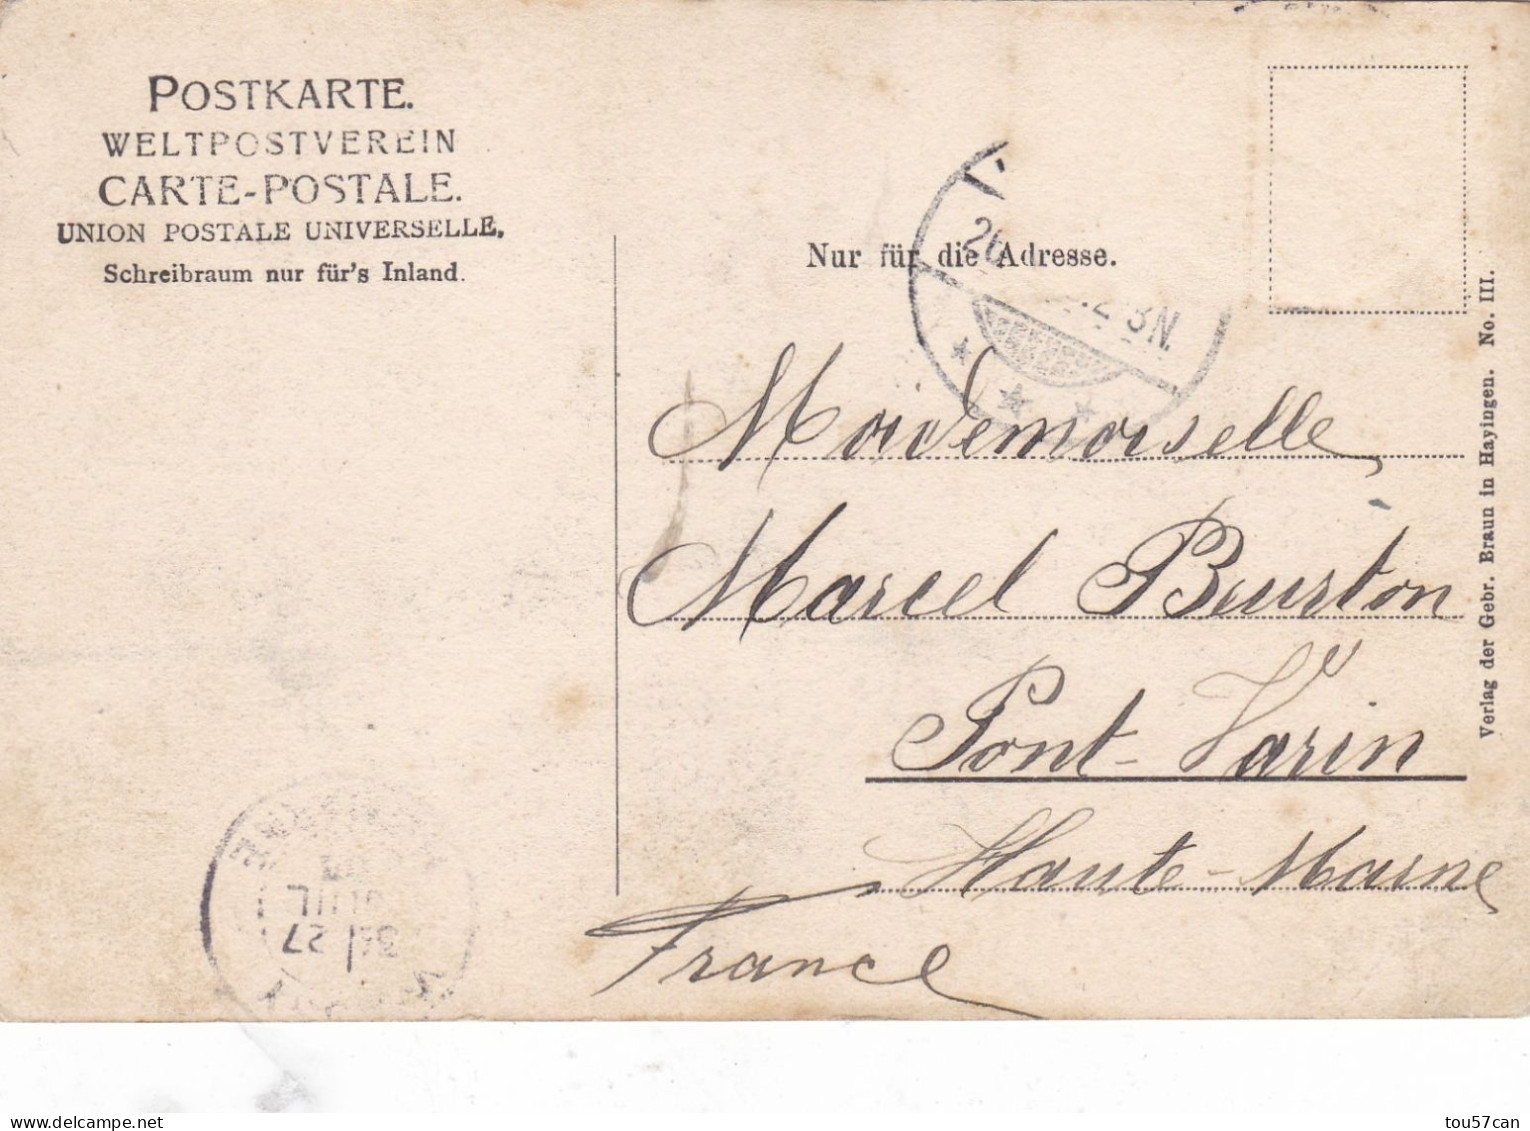 POSTKARTE.
WELTPOSTVEREIN
CARTE-POSTALE.
UNION POSTALE UNIVERSELLE.
Schreibraum nur für's Inland.
Nur für die Adresse.
26
2-3N.
Moidemoiselle
Marcel Beurton
Pont-Varin
Haute-Marne
France
Verlag der Gebr. Braun in Hayingen. No. III.
27
JUIL
tou57can